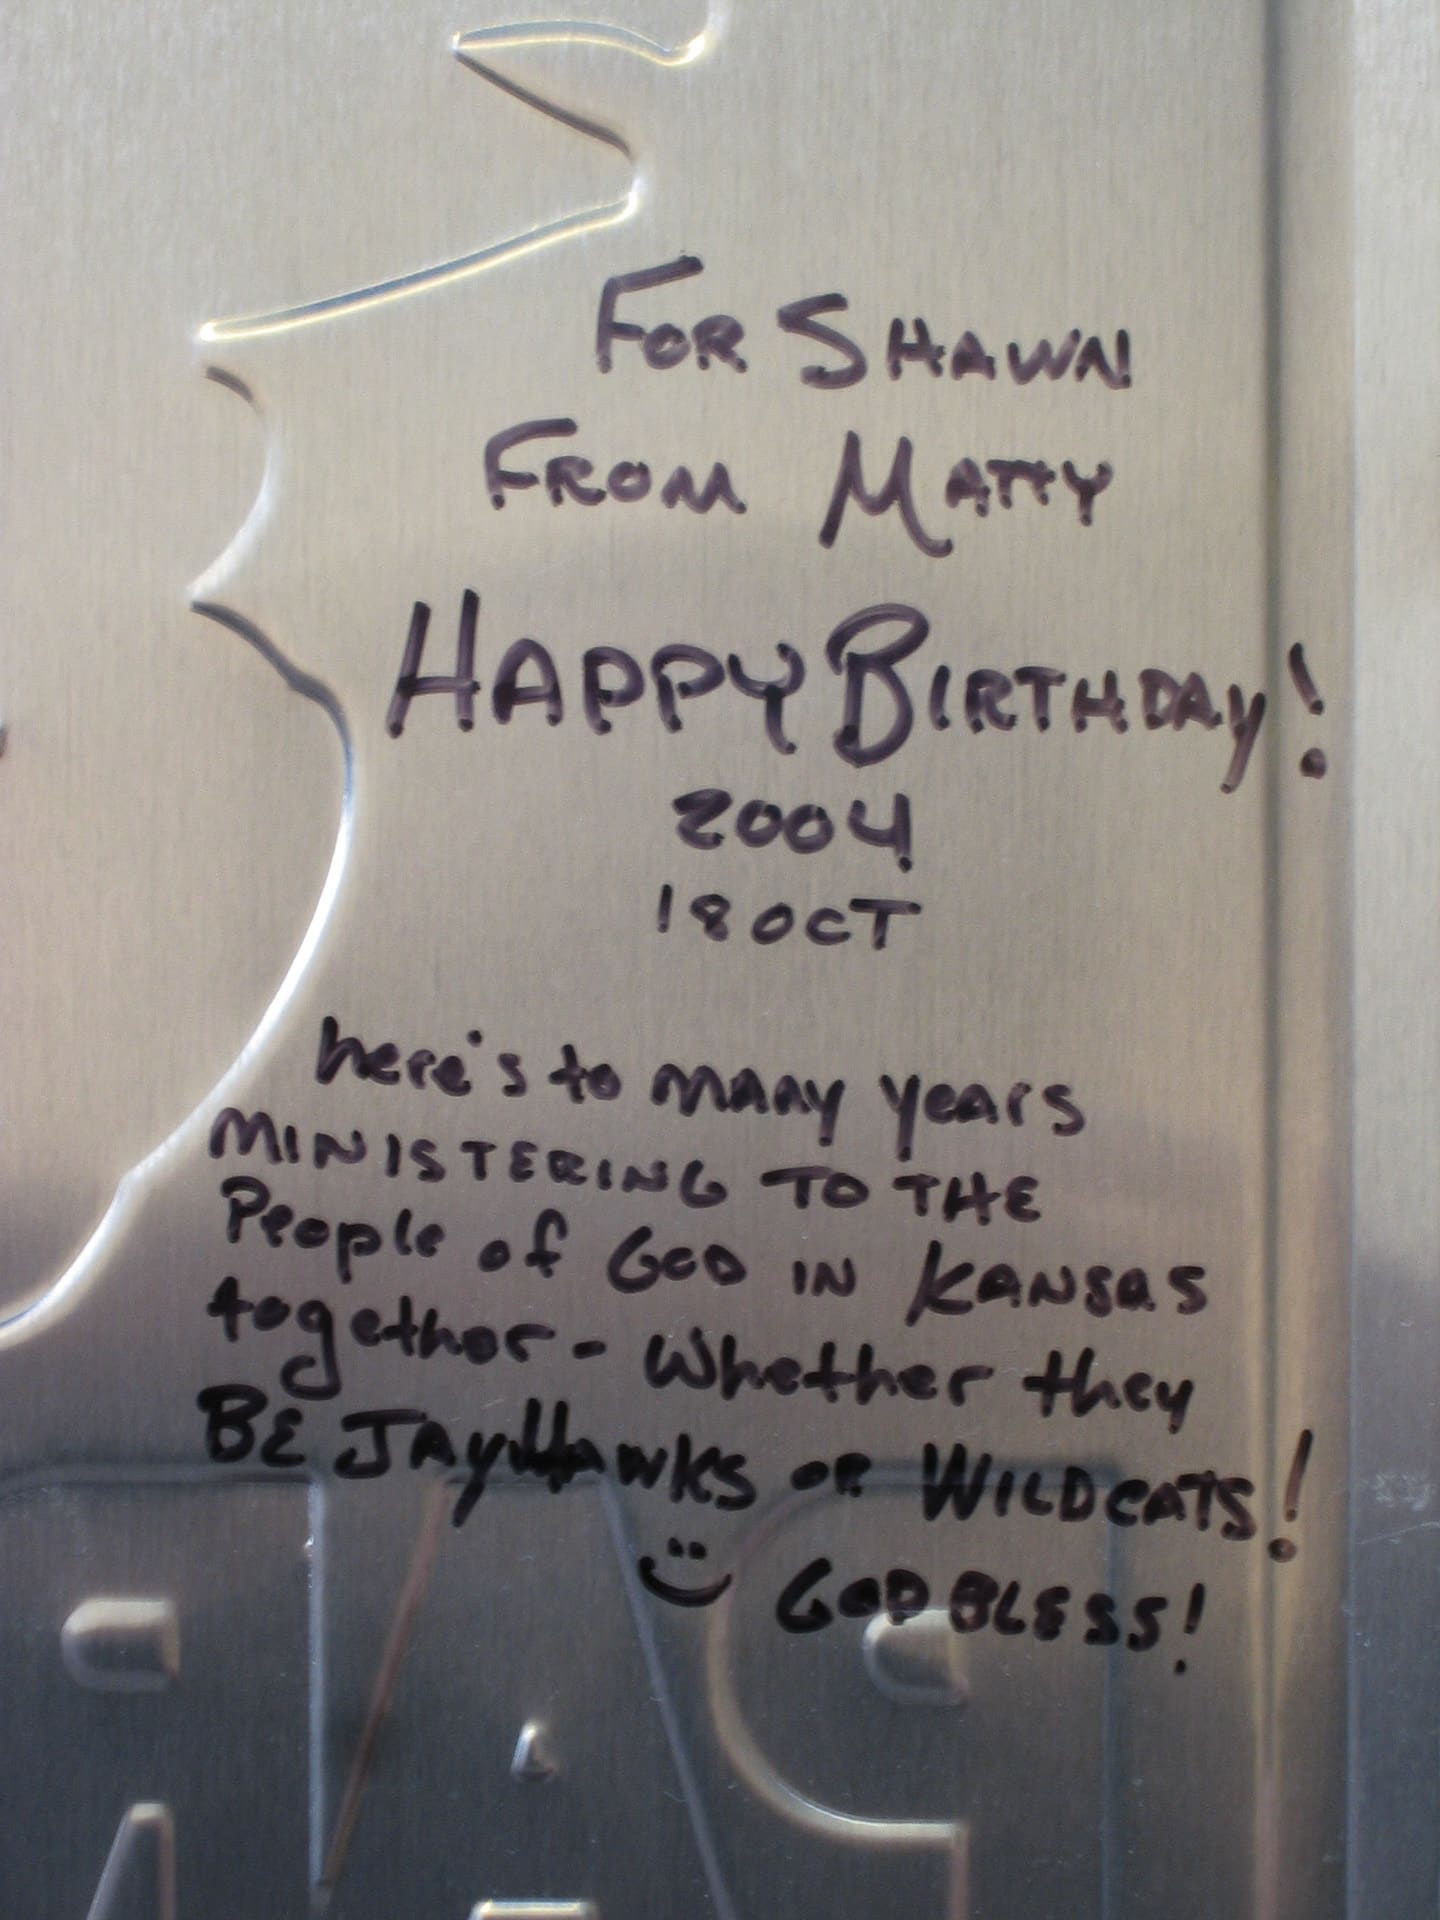 FOR SHAWN
FROM MATTY
HAPPY BIRTHDAY!
2004
18 OCT
here's to many years
MINISTERING TO THE
People of GOD IN KANSAS
together - Whether they
BE JAYHAWKS OR WILDCATS!
GOD BLESS!